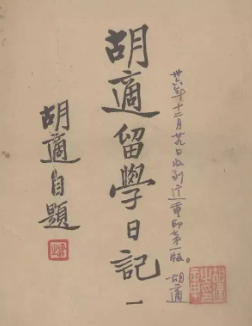 卅六年十二月廿九日收到這重印第一版。
胡適
胡適留學日記 一
胡適自題